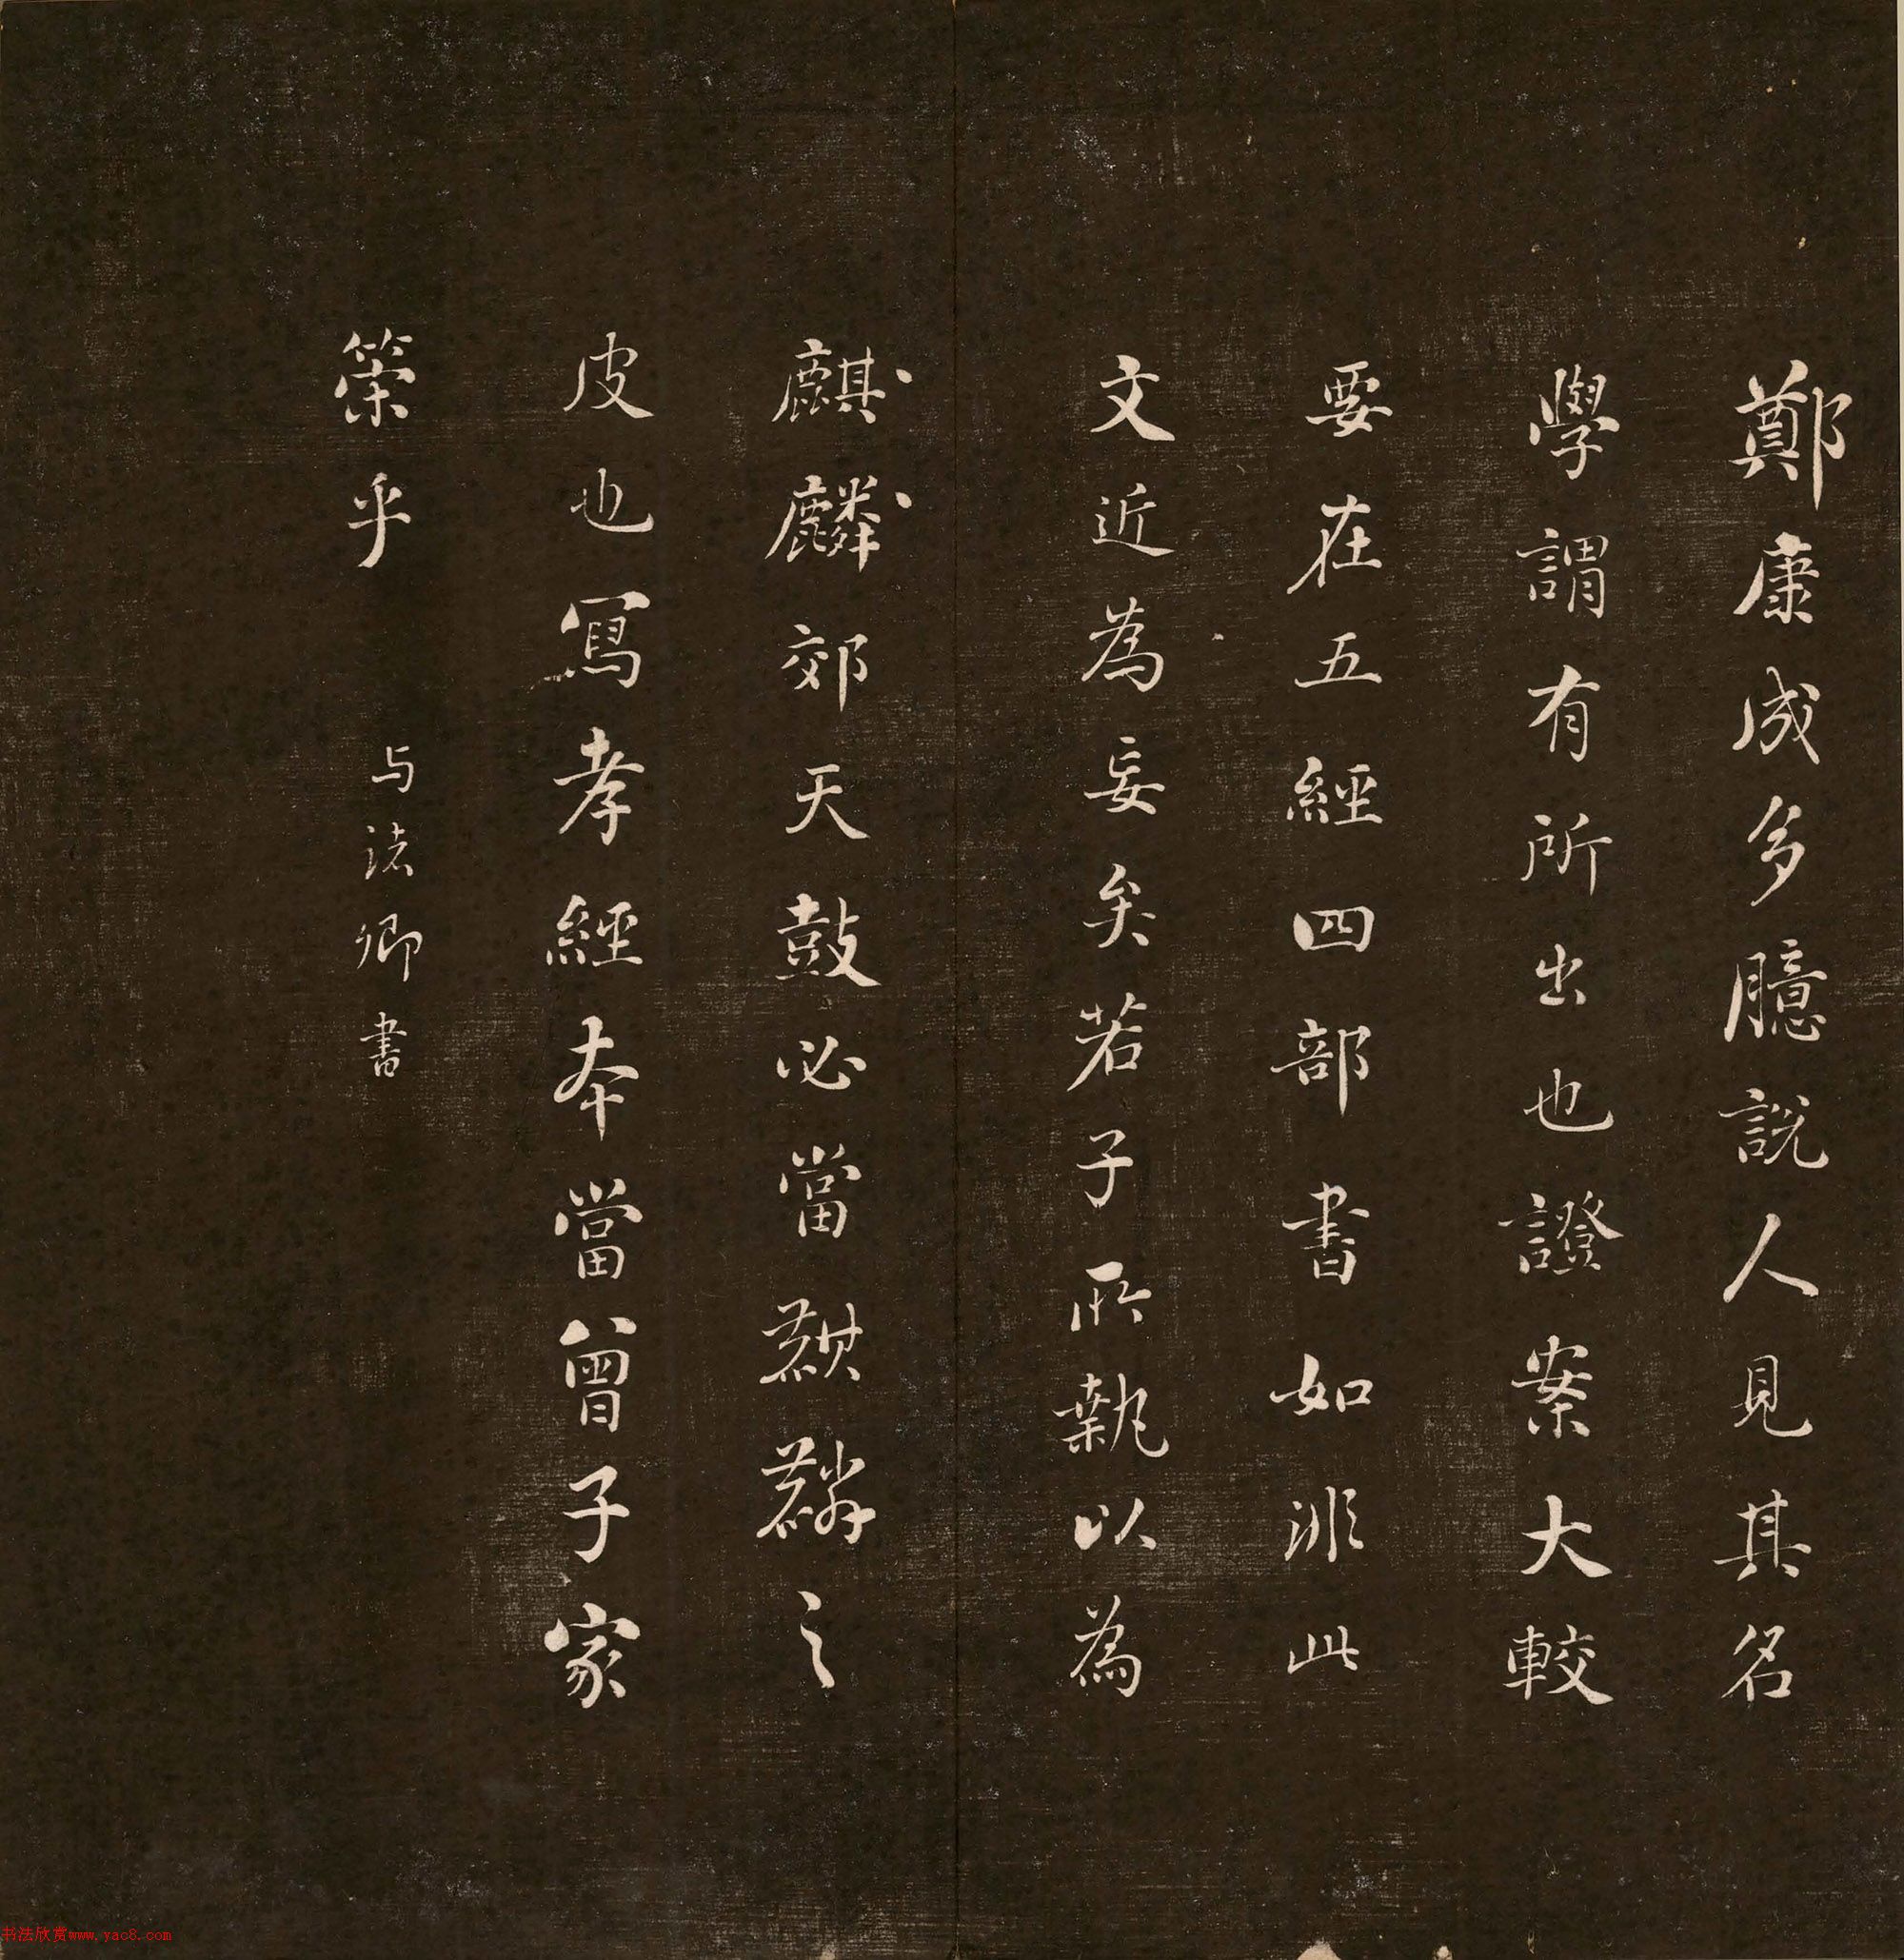 鄭康成多臆說人見其名
學謂有所出也證案大較
要在五經四部書如非此
文近為妄矣若子所執以為
麒麟郊天鼓必當麒麟之
皮也寫孝經本當曾子家
策乎 与諸卿書
书法欣赏www.yac8.com